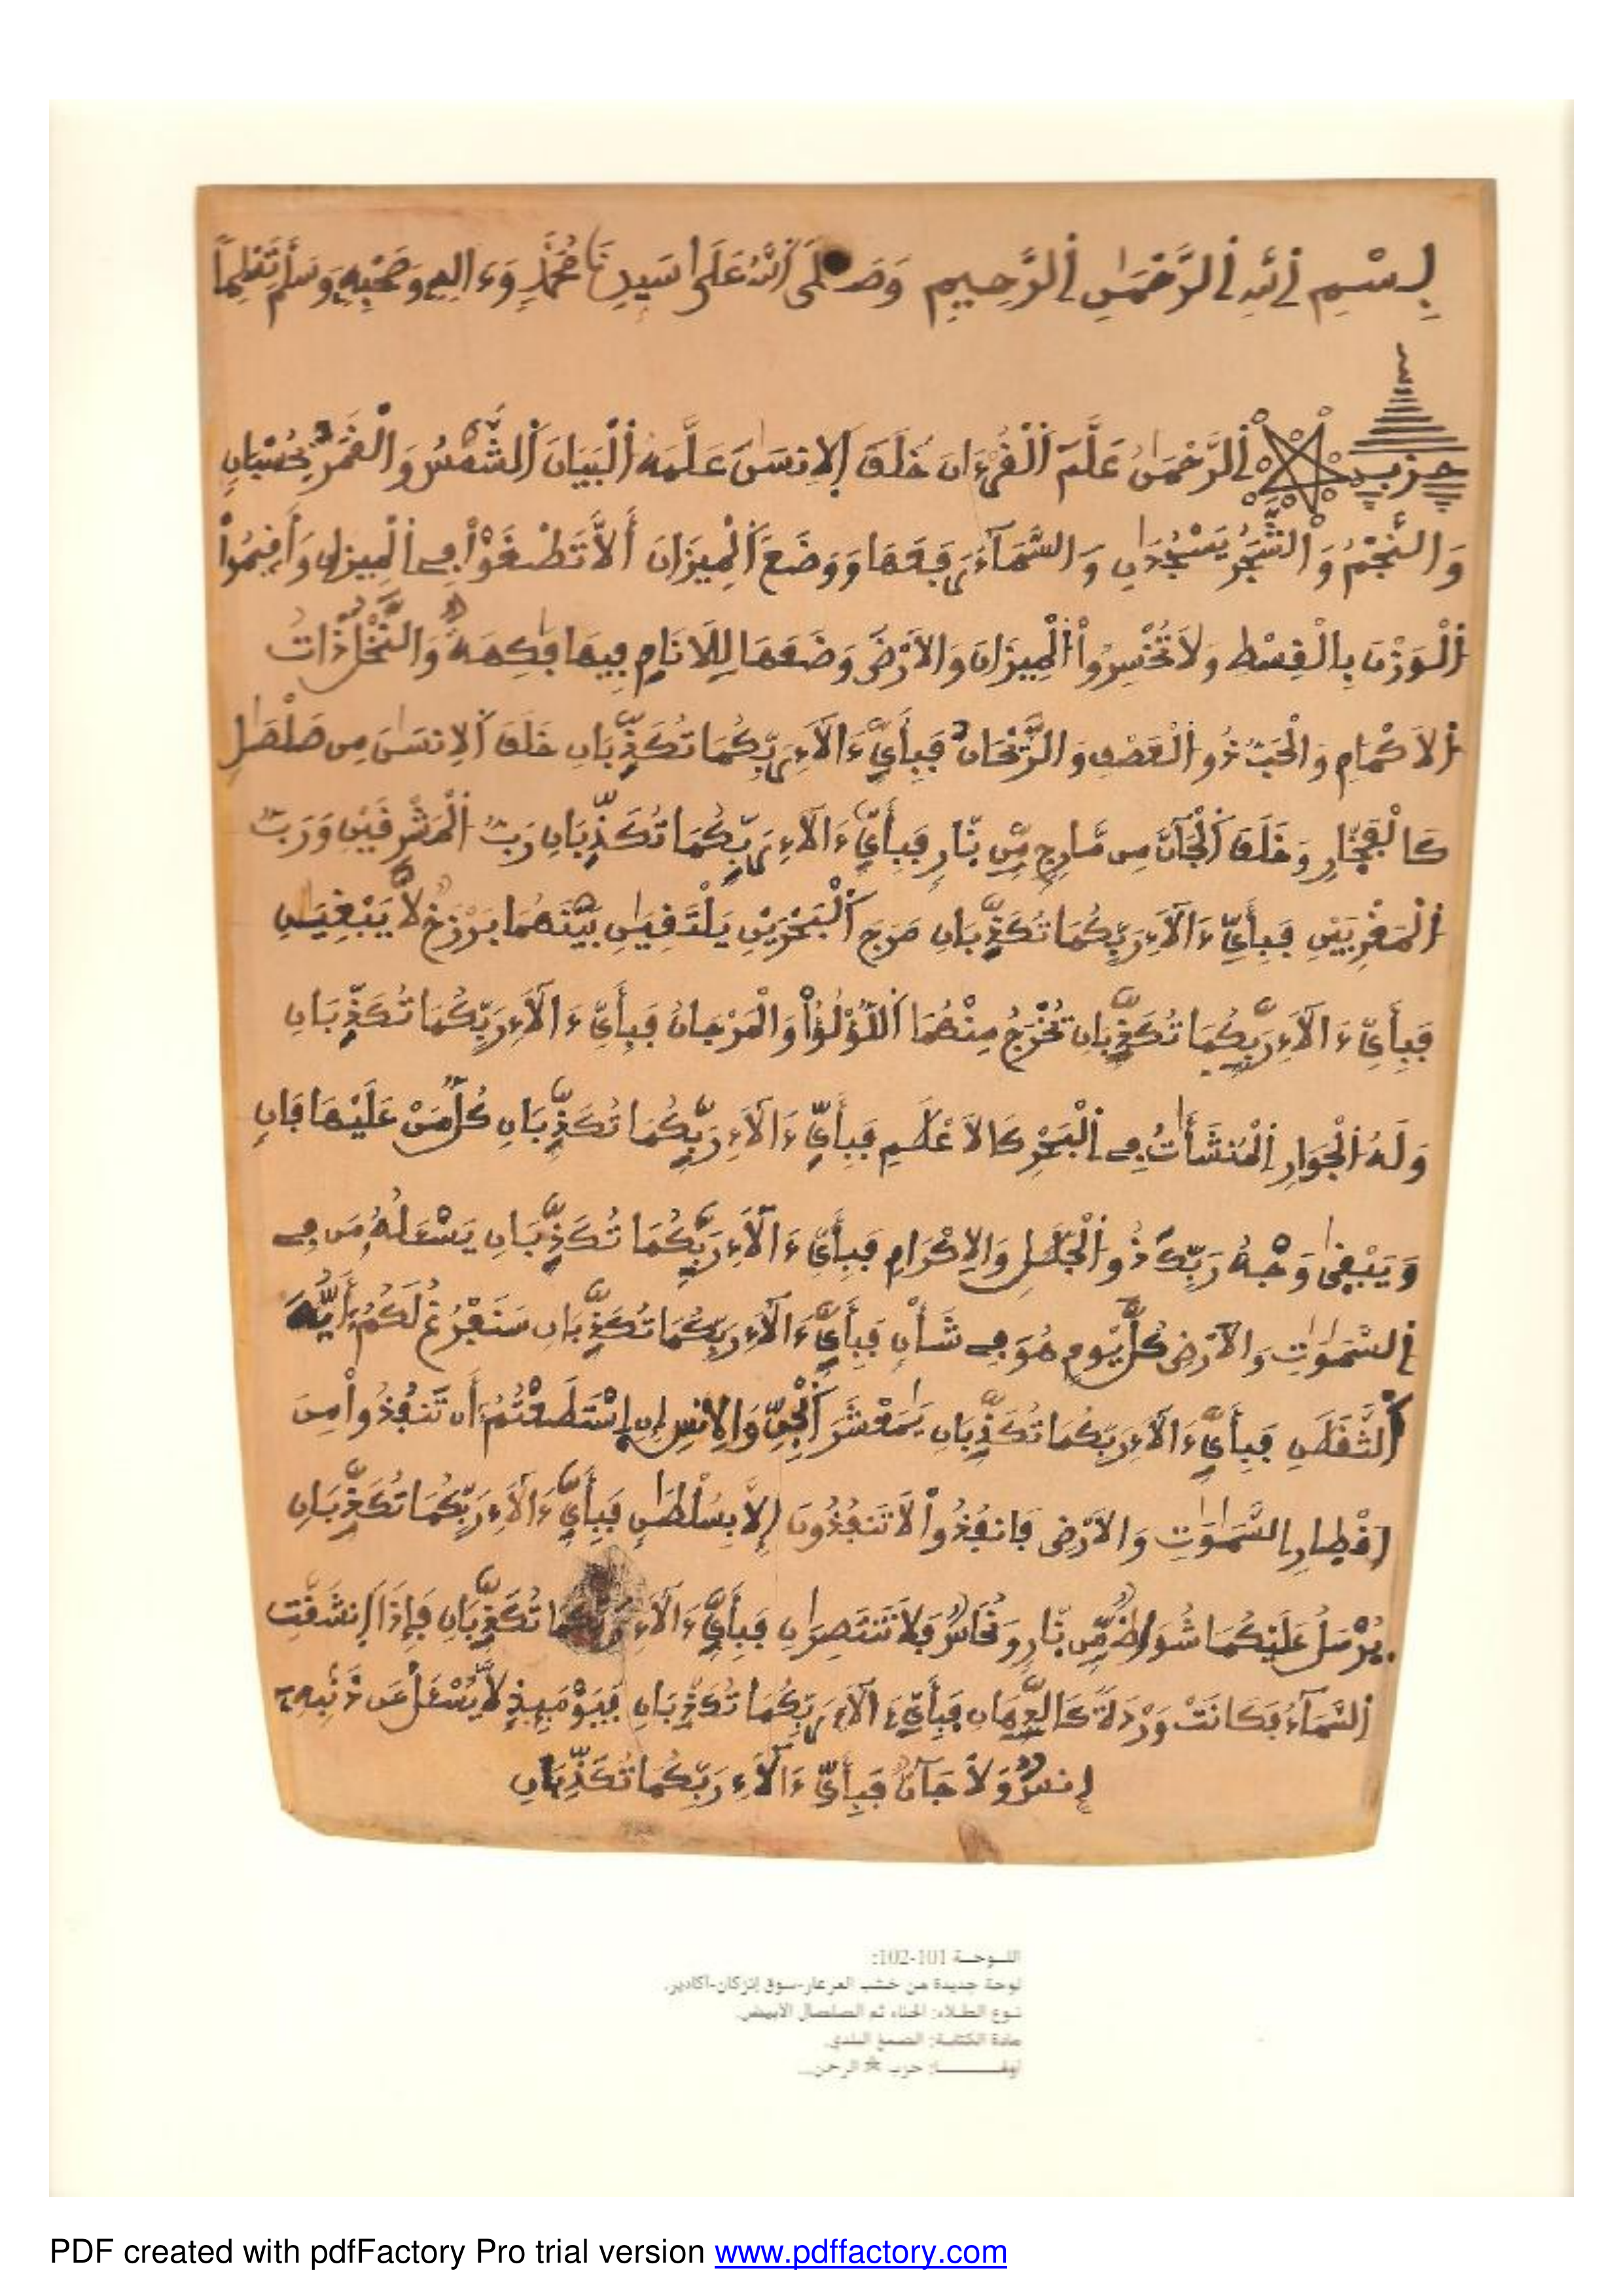 بِسْمِ اِللَّهِ اِلرَّحْمَٰنِ اِلرَّحِيمِ وَصَلَّى اَللَّهُ عَلَىٰ سَيِّدِنَا مُحَمَّدٍ وَءَالِهِ وَصَحْبِهِ وَسَلِّمْ تَسْلِيماً
حزب اِلرَّحْمَٰنُ عَلَّمَ اَلْقُرْءَانَ خَلَقَ اَلِانسَٰنَ عَلَّمَهُ اُلْبَيَانَ اَلشَّمْسُ وَالْقَمَرُ بِحُسْبَانٍ
وَالنَّجْمُ وَالشَّجَرُ يَسْجُدَٰنِ وَالسَّمَآءَ رَفَعَهَا وَوَضَعَ اَلْمِيزَانَ أَلَّا تَطْغَوْاْ فِے اِلْمِيزَٰنِ وَأَقِيمُواْ
اُلْوَزْنَ بِالْقِسْطِ وَلَا تُخْسِرُواْ اُلْمِيزَانَ وَالَارْضَ وَضَعَهَا لِلَانَامِ فِيهَا فَٰكِهَةٌ وَالنَّخْلُ ذَاتُ
اُلَاكْمَامِ وَالْحَبُّ ذُو اُلْعَصْفِ وَالرَّيْحَانُ فَبِأَيِّ ءَالَآءِ رَبِّكُمَا تُكَذِّبَانِ خَلَقَ اَلِانسَٰنَ مِن صَلْصَٰلٍ
كَالْفَخّارِ وَخَلَقَ اَلْجَآنَّ مِن مَّارِجٍ مِّن نّارٍ فَبِأَيِّ ءَالَآءِ رَبِّكُمَا تُكَذِّبَانِ رَبُّ اُلْمَشْرِقَيْنِ وَرَبُّ
اُلْمَغْرِبَيْنِ فَبِأَيِّ ءَالَآءِ رَبِّكُمَا تُكَذِّبَانِ مَرَجَ اَلْبَحْرَيْنِ يَلْتَقِيَٰنِ بَيْنَهُمَا بَرْزَخٌ لَّا يَبْغِيَٰنِ
فَبِأَيِّ ءَالَآءِ رَبِّكُمَا تُكَذِّبَانِ يُخْرَجُ مِنْهُمَا اَللُّؤْلُؤُاْ وَالْمَرْجَانُ فَبِأَيِّ ءَالَآءِ رَبِّكُمَا تُكَذِّبَانِ
وَلَهُ اُلْجَوَارِ اِلْمُنشَـَٔاتُ فِے اِلْبَحْرِ كَالَاعْلَٰمِ فَبِأَيِّ ءَالَآءِ رَبِّكُمَا تُكَذِّبَانِ كُلُّ مَنْ عَلَيْهَا فَانٍ
وَيَبْقَىٰ وَجْهُ رَبِّكَ ذُو اُلْجَلَٰلِ وَالِاكْرَامِ فَبِأَيِّ ءَالَآءِ رَبِّكُمَا تُكَذِّبَانِ يَسْـَٔلُهُۥ مَن فِے
اِلسَّمَٰوَٰتِ وَالَارْضِ كُلَّ يَوْمٍ هُوَ فِے شَأْنٍ فَبِأَيِّ ءَالَآءِ رَبِّكُمَا تُكَذِّبَانِ سَنَفْرُغُ لَكُمُۥ أَيُّهَ
اَلثَّقَلَٰنِ فَبِأَيِّ ءَالَآءِ رَبِّكُمَا تُكَذِّبَانِ يَٰمَعْشَرَ اَلْجِنِّ وَالِانسِ إِنِ اِسْتَطَعْتُمُۥ أَن تَنفُذُواْ مِنَ
اَقْطِارِ اِلسَّمَٰوَٰتِ وَالَارْضِ فَانفُذُواْ لَا تَنفُذُونَ إِلَّا بِسُلْطَٰنٍ فَبِأَيِّ ءَالَآءِ رَبِّكُمَا تُكَذِّبَانِ
يُرْسَلُ عَلَيْكُمَا شُوَاظٌ مِّن نّارٍ وَنُحَاسٌ فَلَا تَنتَصِرَٰنِ فَبِأَيِّ ءَالَآءِ رَبِّكُمَا تُكَذِّبَانِ فَإِذَا اَنشَقَّتِ
اِلسَّمَآءُ فَكَانَتْ وَرْدَةً كَالدِّهَانِ فَبِأَيِّ ءَالَآءِ رَبِّكُمَا تُكَذِّبَانِ فَيَوْمَئِذٍ لَّا يُسْـَٔلُ عَن ذَنۢبِهِۦٓ
إِنسٌ وَلَا جَآنٌّ فَبِأَيِّ ءَالَآءِ رَبِّكُمَا تُكَذِّبَانِ
اللـوحـة 101-102:
لوحة جديدة من خشب العرعار-سوق إنزكان-أكادير.
نـوع الطـلاء: الحناء ثم الصلصال الأبيض.
مادة الكتابـة: الصمغ البلدي.
أولهـــــا: حزب * الرحمن...
PDF created with pdfFactory Pro trial version www.pdffactory.com